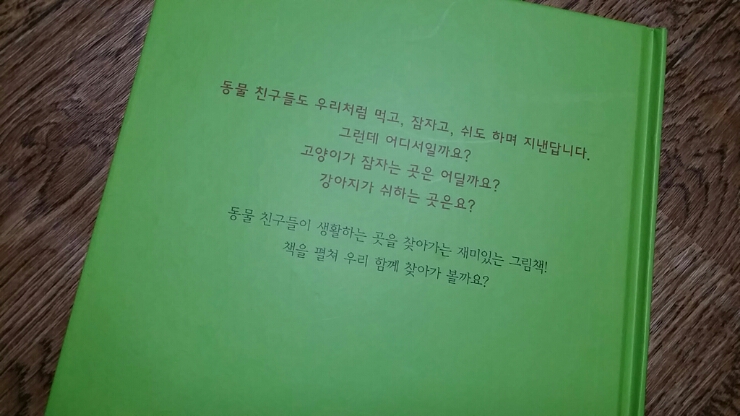 동물 친구들도 우리처럼 먹고, 잠자고, 쉬도 하며 지낸답니다.
그런데 어디서일까요?
고양이가 잠자는 곳은 어딜까요?
강아지가 쉬하는 곳은요?
동물 친구들이 생활하는 곳을 찾아가는 재미있는 그림책!
책을 펼쳐 우리 함께 찾아가 볼까요?